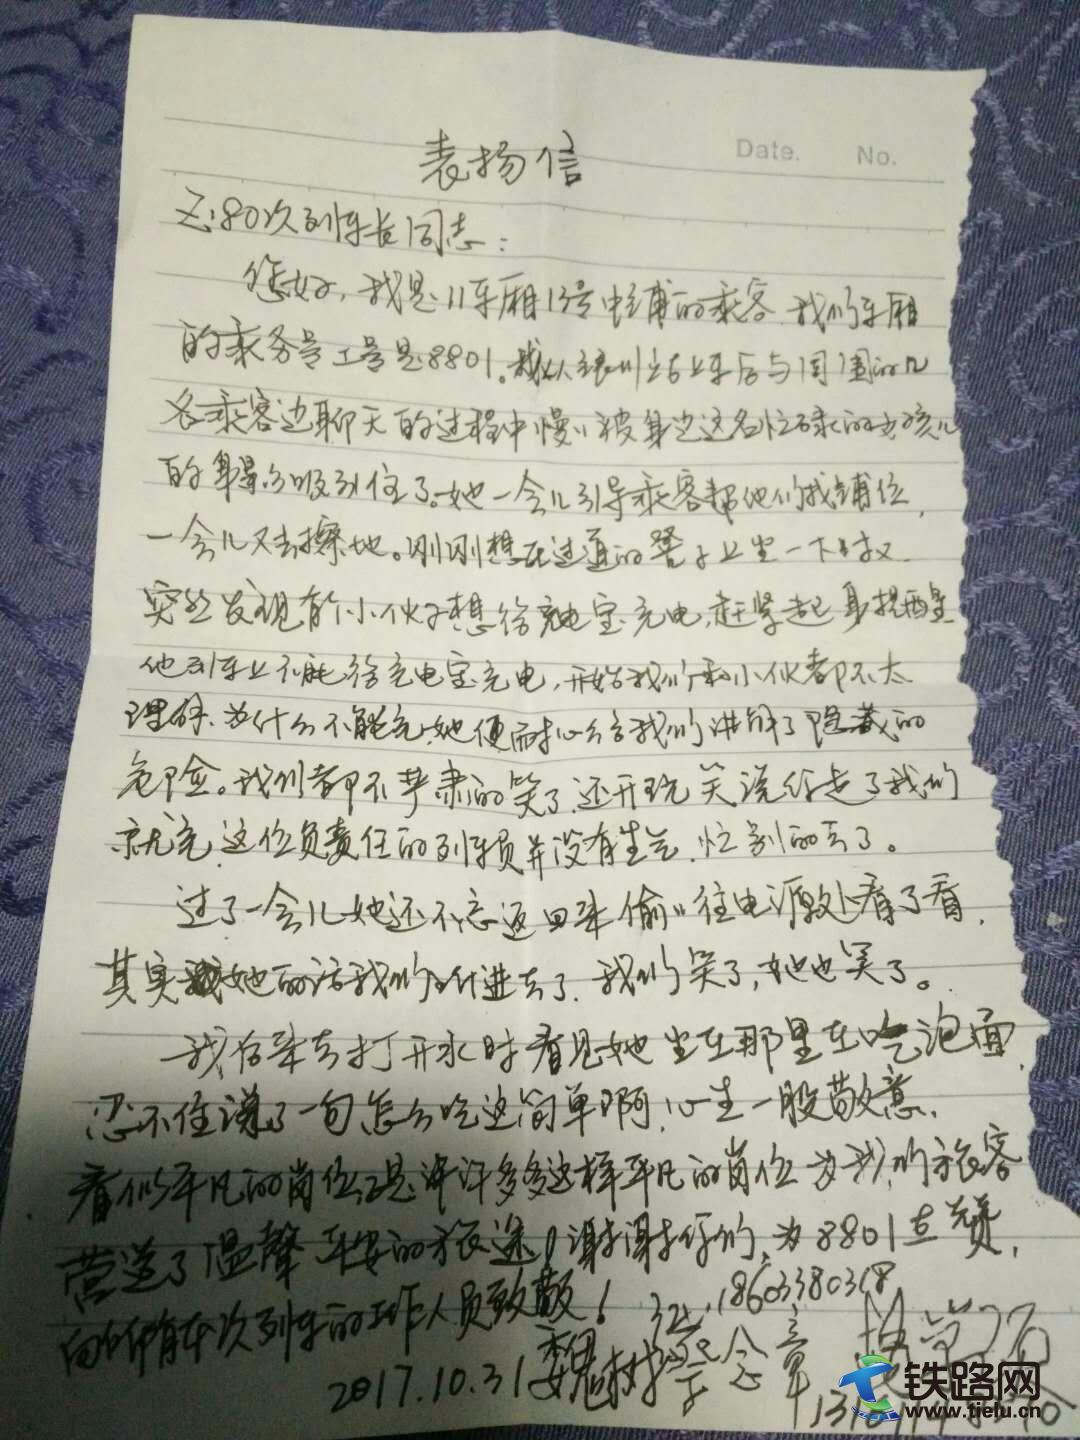 Date. No.
表扬信
Z:80次列车长同志:
您好,我是11车厢13号中铺的乘客.我们车厢
的乘务员工号是8801。我从银川站上车后与周围的几
名乘客边聊天的过程中慢〃被身边这名忙碌的女孩儿
的身影吸引住了。她一会儿引导乘客帮他们找铺位,
一会儿又去擦地。刚刚想在过道的凳子上坐一下时又
突然发现有个小伙子想给充电宝充电,赶紧起身提醒
他列车上不能给充电宝充电,开始我们和小伙都不太
理解.为什么不能充,她便耐心给我们讲解了隐藏的
危险。我们都不严肃的笑了.还开玩笑说你走了我们
就充.这位负责任的列车员并没有生气.忙别的去了。
过了一会儿她还不忘返回来偷〃往电源处看了看.
其实她的话我们听进去了.我们笑了,她也笑了。
我后来去打开水时看见她坐在那里在吃泡面.
忍不住说了一句怎么吃这简单啊!心生一股敬意.
看似平凡的岗位,正是许许多多这样平凡的岗位为我们旅客
营造了温馨平安的旅途!谢谢你们,为8801点赞,
向所有本次列车的工作人员致敬!
18603380318
2017.10.31 魏树
铁路网
www.tielu.cn